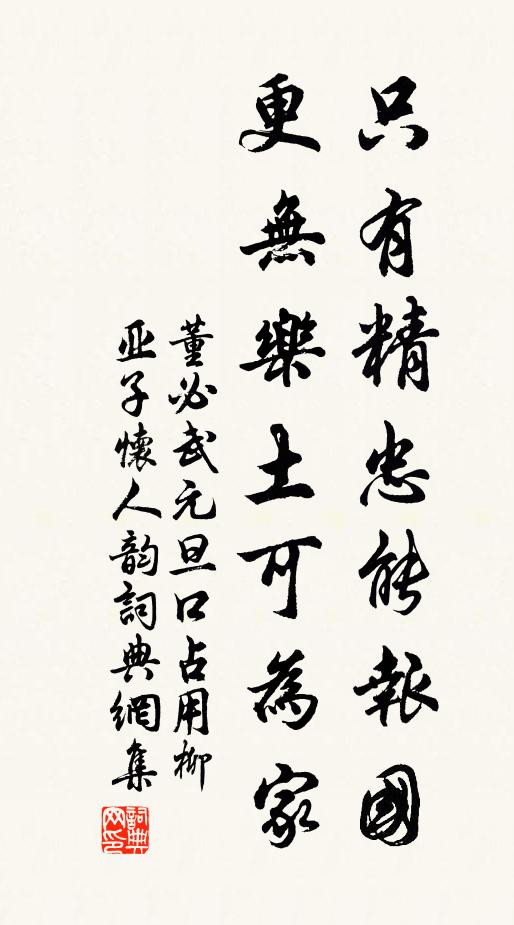 只有精忠能報國
更無樂土可為家
董必武元旦口占用柳
亚子懷人韵詞典網集
詞典網印